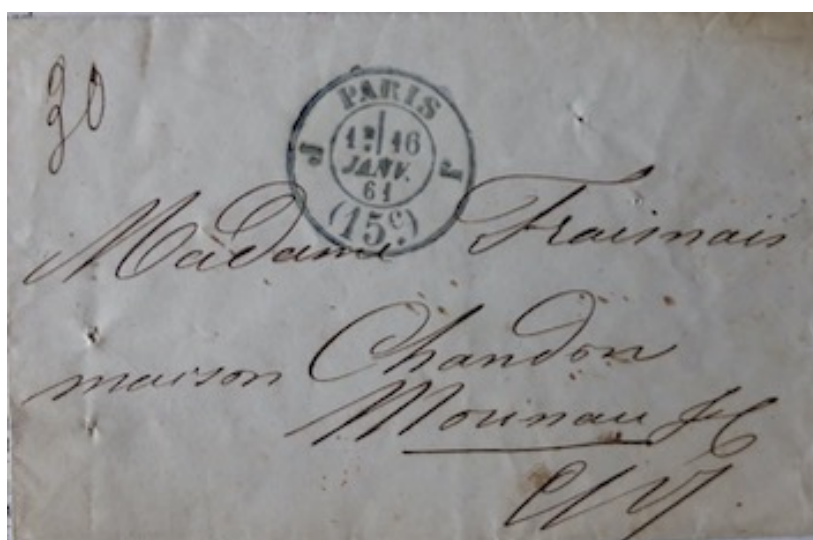 30
PARIS
J
1e 16
J
JANV.
61
(15c)
Madame Fraimais
maison Chandon
Mounau
E/V